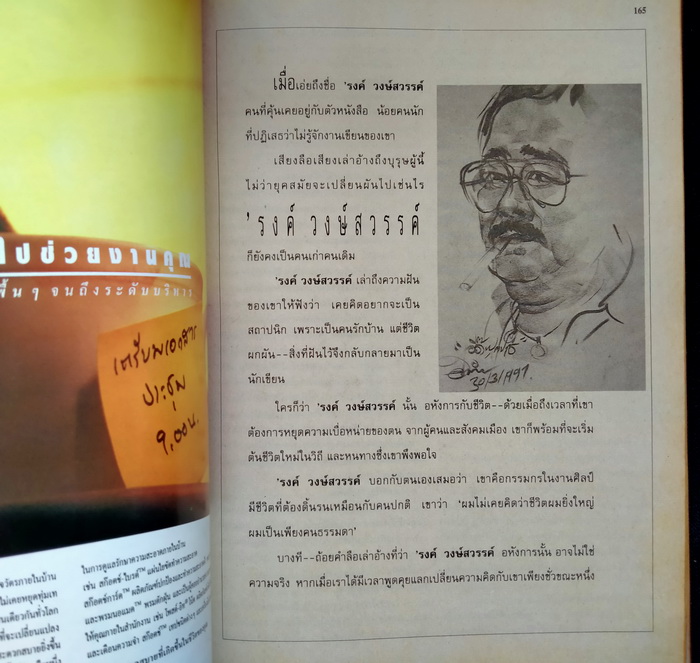 ไปช่วยงานคุณ
พื้นๆ จนถึงระดับบริหาร
เตรียมเอกสาร
ประชุม
9.00น.
ในการดูแลรักษาความสะอาดภายในบ้าน
165
เมื่อเอ่ยถึงชื่อ 'รงค์ วงษ์สวรรค์
คนที่คุ้นเคยอยู่กับตัวหนังสือ น้อยคนนัก
ที่ปฏิเสธว่าไม่รู้จักงานเขียนของเขา
เสียงลือเสียงเล่าอ้างถึงบุรุษผู้นี้
ไม่ว่ายุคสมัยจะเปลี่ยนผันไปเช่นไร
'รงค์ วงษ์สวรรค์
ก็ยังคงเป็นคนเก่าคนเดิม
'รงค์ วงษ์สวรรค์ เล่าถึงความฝัน
ของเขาให้ฟังว่า เคยคิดอยากจะเป็น
สถาปนิก เพราะเป็นคนรักบ้าน แต่ชีวิต
ผกผัน--สิ่งที่ฝันไว้จึงกลับกลายมาเป็น
นักเขียน
30/3/1991.
ใครก็ว่า 'รงค์ วงษ์สวรรค์ นั้น อหังการกับชีวิต--ด้วยเมื่อถึงเวลาที่เขา
ต้องการหยุดความเบื่อหน่ายของตน จากผู้คนและสังคมเมือง เขาก็พร้อมที่จะเริ่ม
ต้นชีวิตใหม่ในวิถี และหนทางซึ่งเขาพึงพอใจ
'รงค์ วงษ์สวรรค์ บอกกับตนเองเสมอว่า เขาคือกรรมกรในงานศิลป์
มีชีวิตที่ต้องดิ้นรนเหมือนกับคนปกติ เขาว่า 'ผมไม่เคยคิดว่าชีวิตผมยิ่งใหญ่
ผมเป็นเพียงคนธรรมดา'
บางที--ถ้อยคำลือเล่าอ้างที่ว่า 'รงค์ วงษ์สวรรค์ อหังการนั้น อาจไม่ใช่
ความจริง หากเมื่อเราได้มีเวลาพูดคุยแลกเปลี่ยนความคิดกับเขาเพียงชั่วขณะหนึ่ง